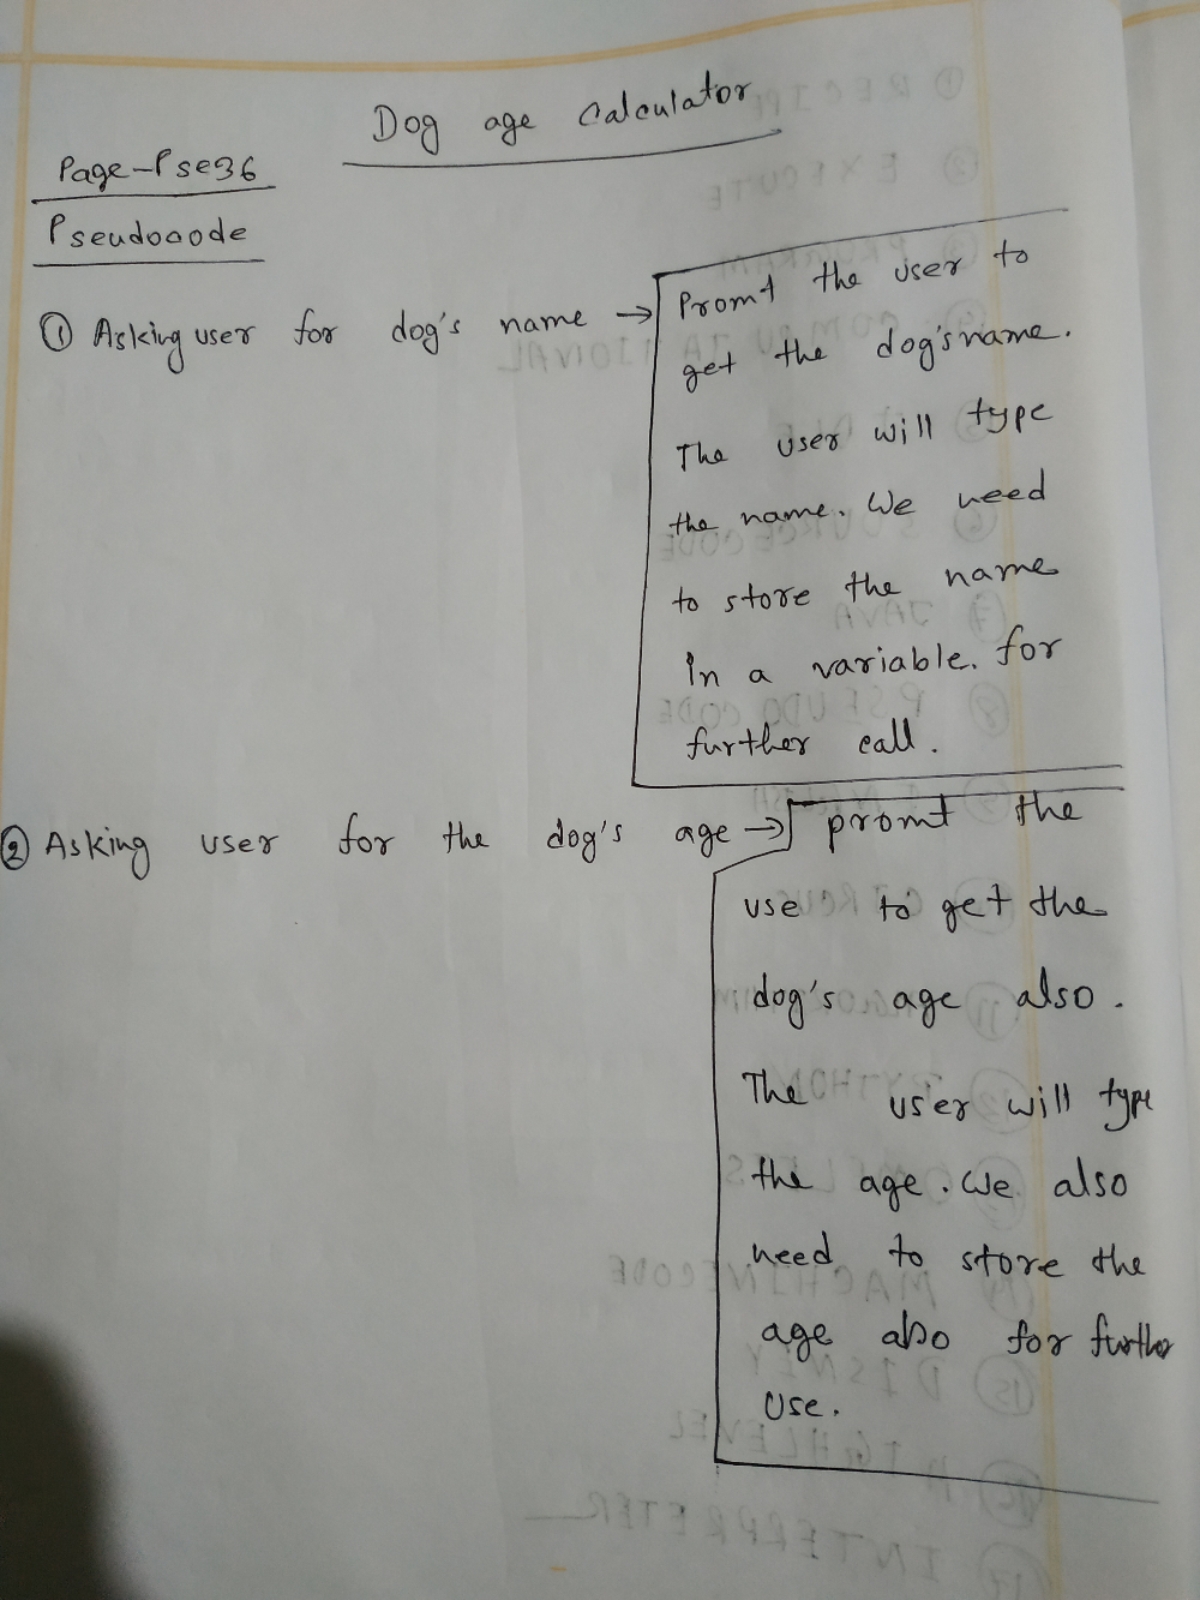 Dog age calculator
Page-Pse36
Pseudocode
① Asking user for dog's name →
Promt the user to
get the dog's name.
The user will type
the name. We need
to store the name
in a variable. for
further call.
② Asking user for the dog's age →
promt the
use to get the
dog's age also.
The user will type
the age. We also
need to store the
age also for further
use.